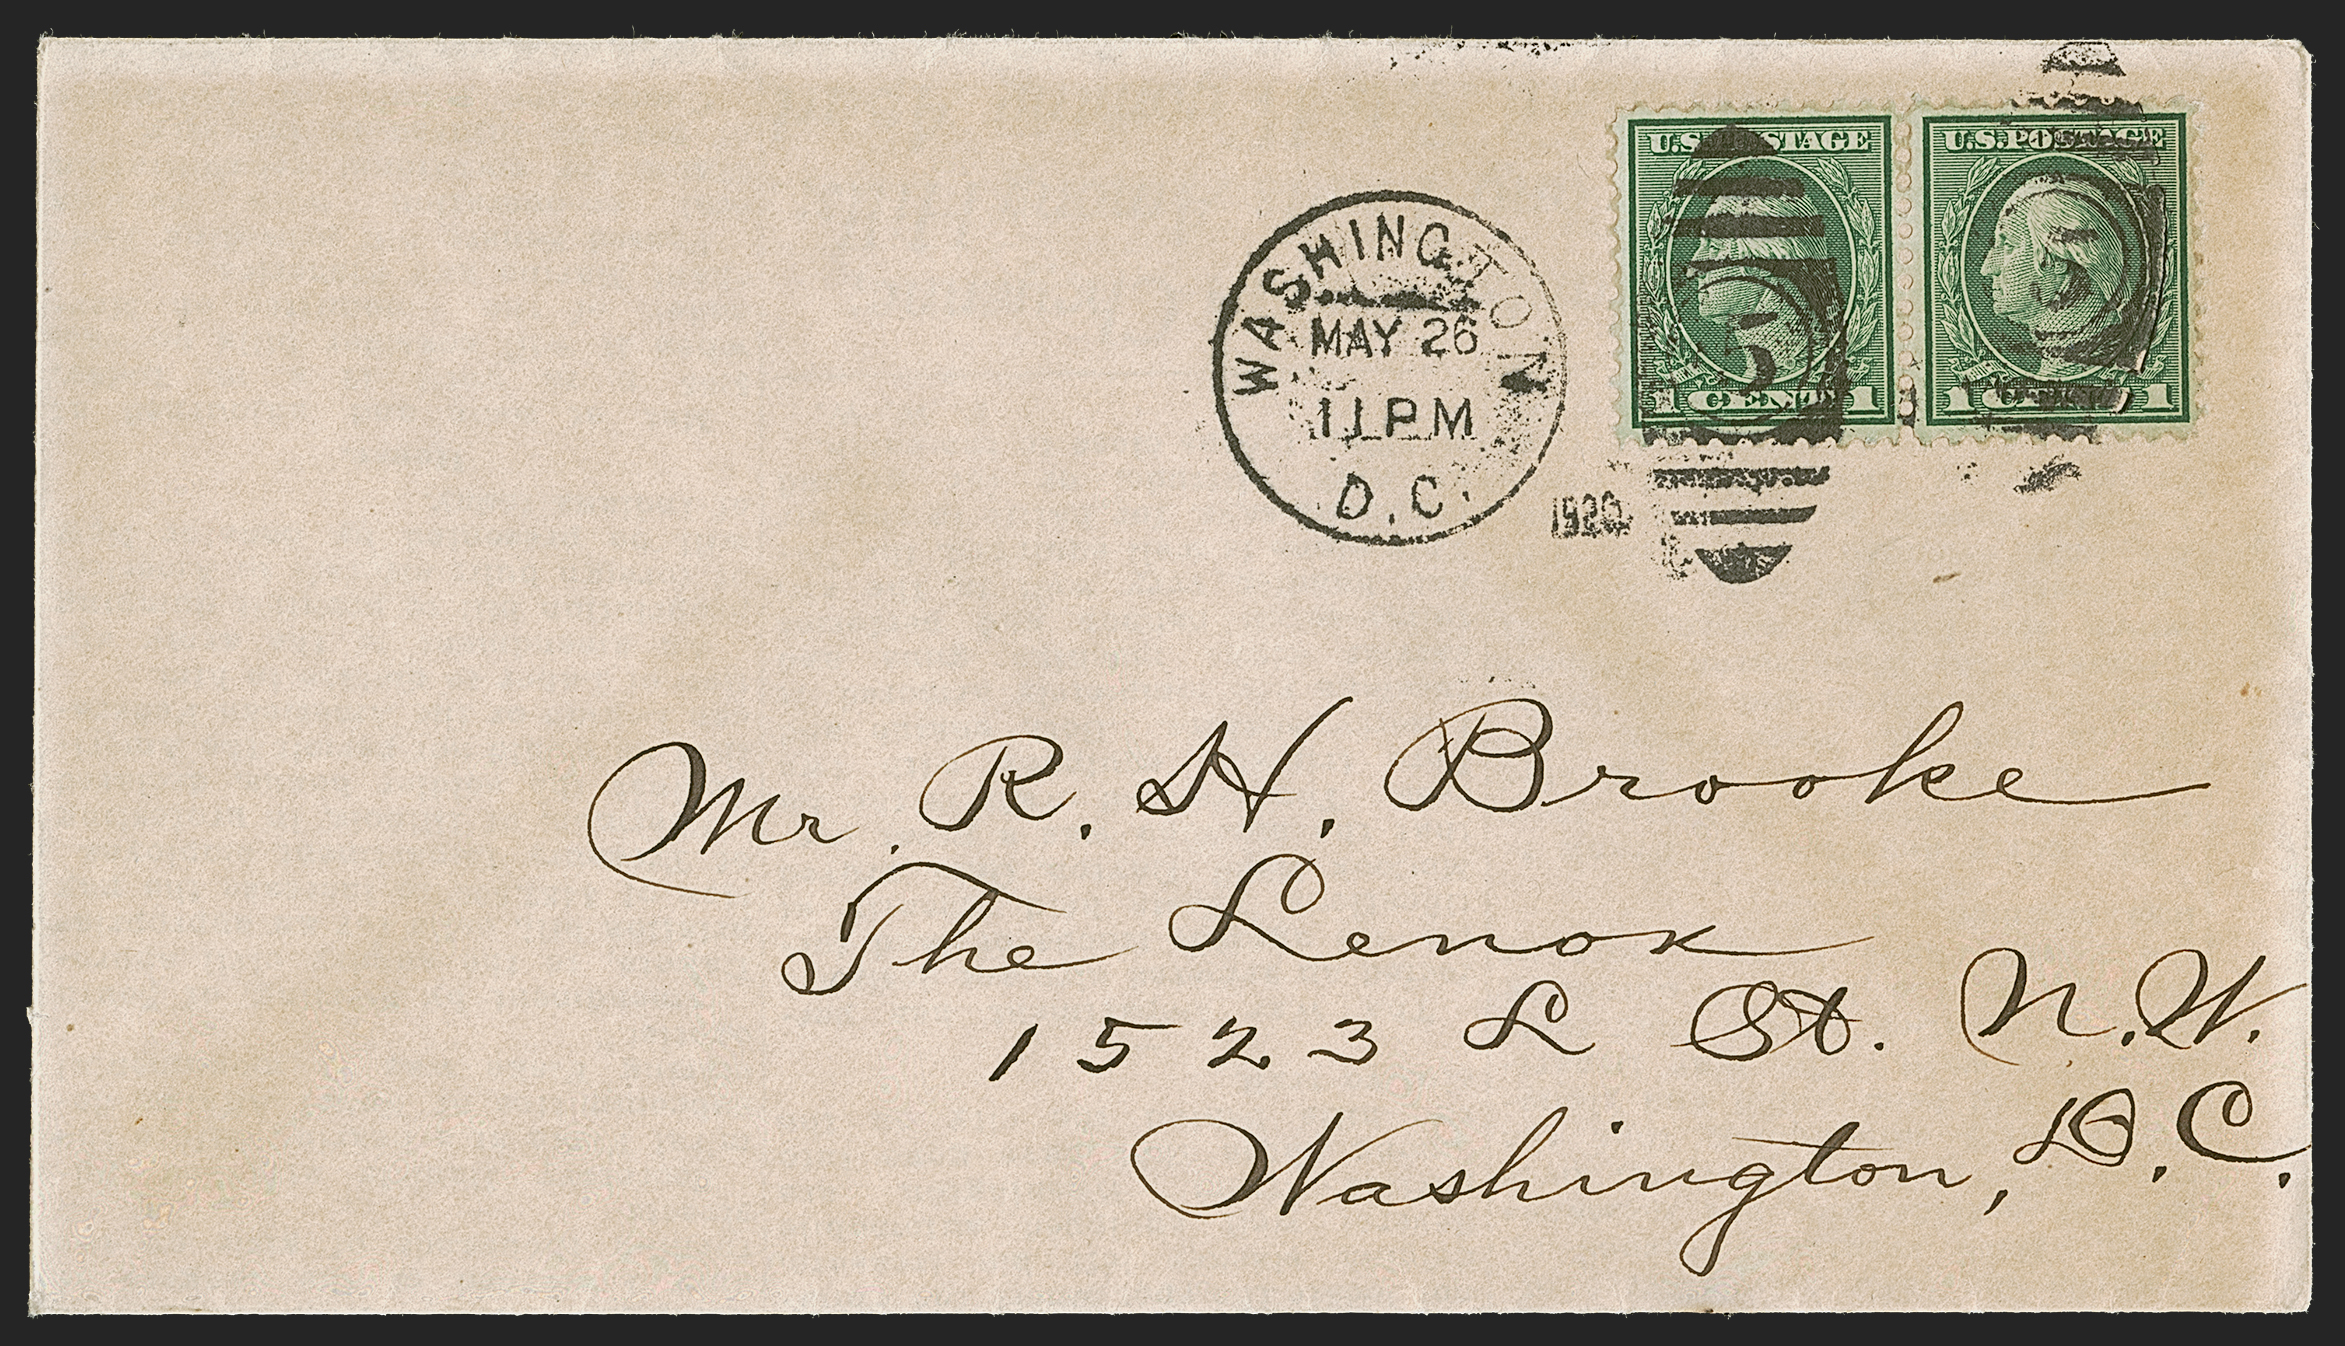 U.S. POSTAGE U.S. POSTAGE
WASHINGTON
MAY 26
11 PM
D.C.
1920
5 5
1 CENT 1 1 CENT 1
Mr. R. H. Brooke
The Lenox
1523 L St. N.W.
Washington, D.C.